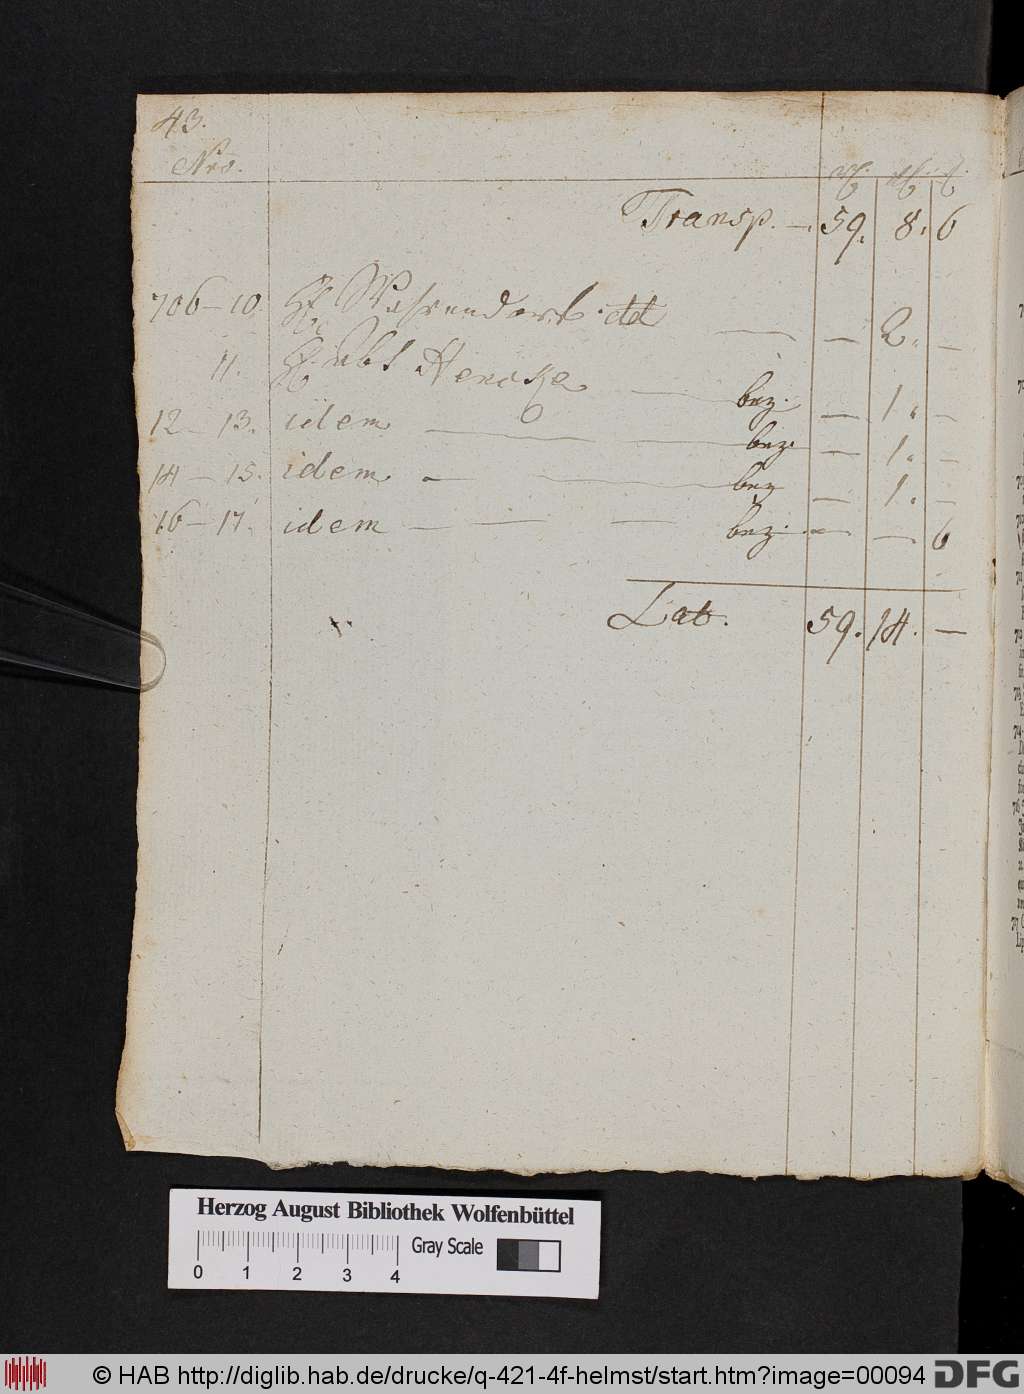 43.
Nro.
Transp. — 59. 8. 6
706 — 10. H. Wahrendorf dd — — 2. —
11. H. Abt Hencke — bez. — 1. —
12 — 13. idem — bez. — 1. —
14 — 15. idem — bez — 1. —
16 — 17. idem — bez. — — 6
Lat. 59. 14. —
Herzog August Bibliothek Wolfenbüttel
0 1 2 3 4 Gray Scale
© HAB http://diglib.hab.de/drucke/q-421-4f-helmst/start.htm?image=00094 DFG